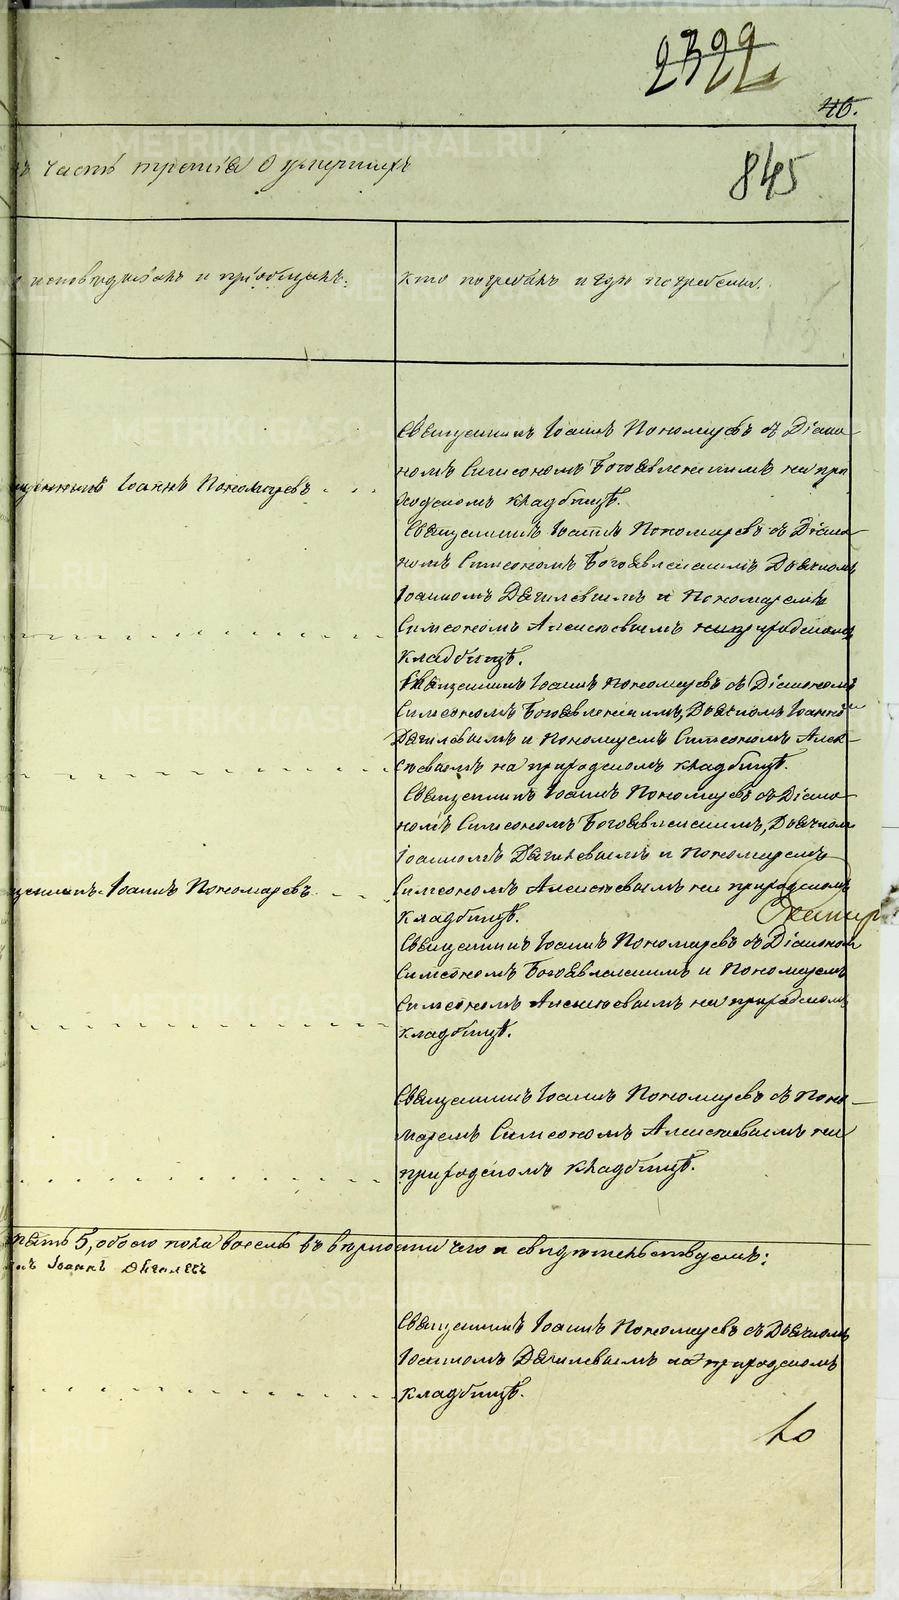 2322
46.
ъ часть третія О умершихъ
845
исповѣдывалъ и пріобщалъ:
Кто погребалъ и гдѣ погребены.
Священникъ Іоаннъ Пономаревъ съ Діако-
номъ Симеономъ Богоявленскимъ на при
ходскомъ кладбищѣ.
щенникъ Іоаннъ Пономаревъ
Священникъ Іоаннъ Пономаревъ съ Діако-
номъ Симеономъ Богоявленскимъ Дьячкомъ
Іоанномъ Дягилевымъ и Пономаремъ
Симеономъ Алексѣевымъ на приходскомъ
кладбищѣ.
Священникъ Іоаннъ Пономаревъ съ Діакономъ
Симеономъ Богоявленскимъ, Дьячкомъ Іоанно
Дягилевымъ и Пономаремъ Симеономъ Алек-
сѣевымъ на приходскомъ кладбищѣ.
Священникъ Іоаннъ Пономаревъ съ Діако-
номъ Симеономъ Богоявленскимъ, Дьячком
Іоанномъ Дягилевымъ и Пономаремъ
щенникъ Іоаннъ Пономаревъ
Симеономъ Алексѣевымъ на приходскомъ
кладбищѣ.
Священникъ Іоаннъ Пономаревъ съ Діаконом
Симеономъ Богоявленскимъ и Пономаремъ
Симеономъ Алексѣевымъ на приходскомъ
кладбищѣ.
Священникъ Іоаннъ Пономаревъ съ Поно-
маремъ Симеономъ Алексѣевымъ на
приходскомъ кладбищѣ.
пять 5, обоего пола восемь въ вѣрности чего и свидѣтельствуемъ:
Іоаннъ Дягилевъ
Священникъ Іоаннъ Пономаревъ съ Дьячкомъ
Іоанномъ Дягилевымъ на приходскомъ
кладбищѣ.
METRIKI.GASO-URAL.RU